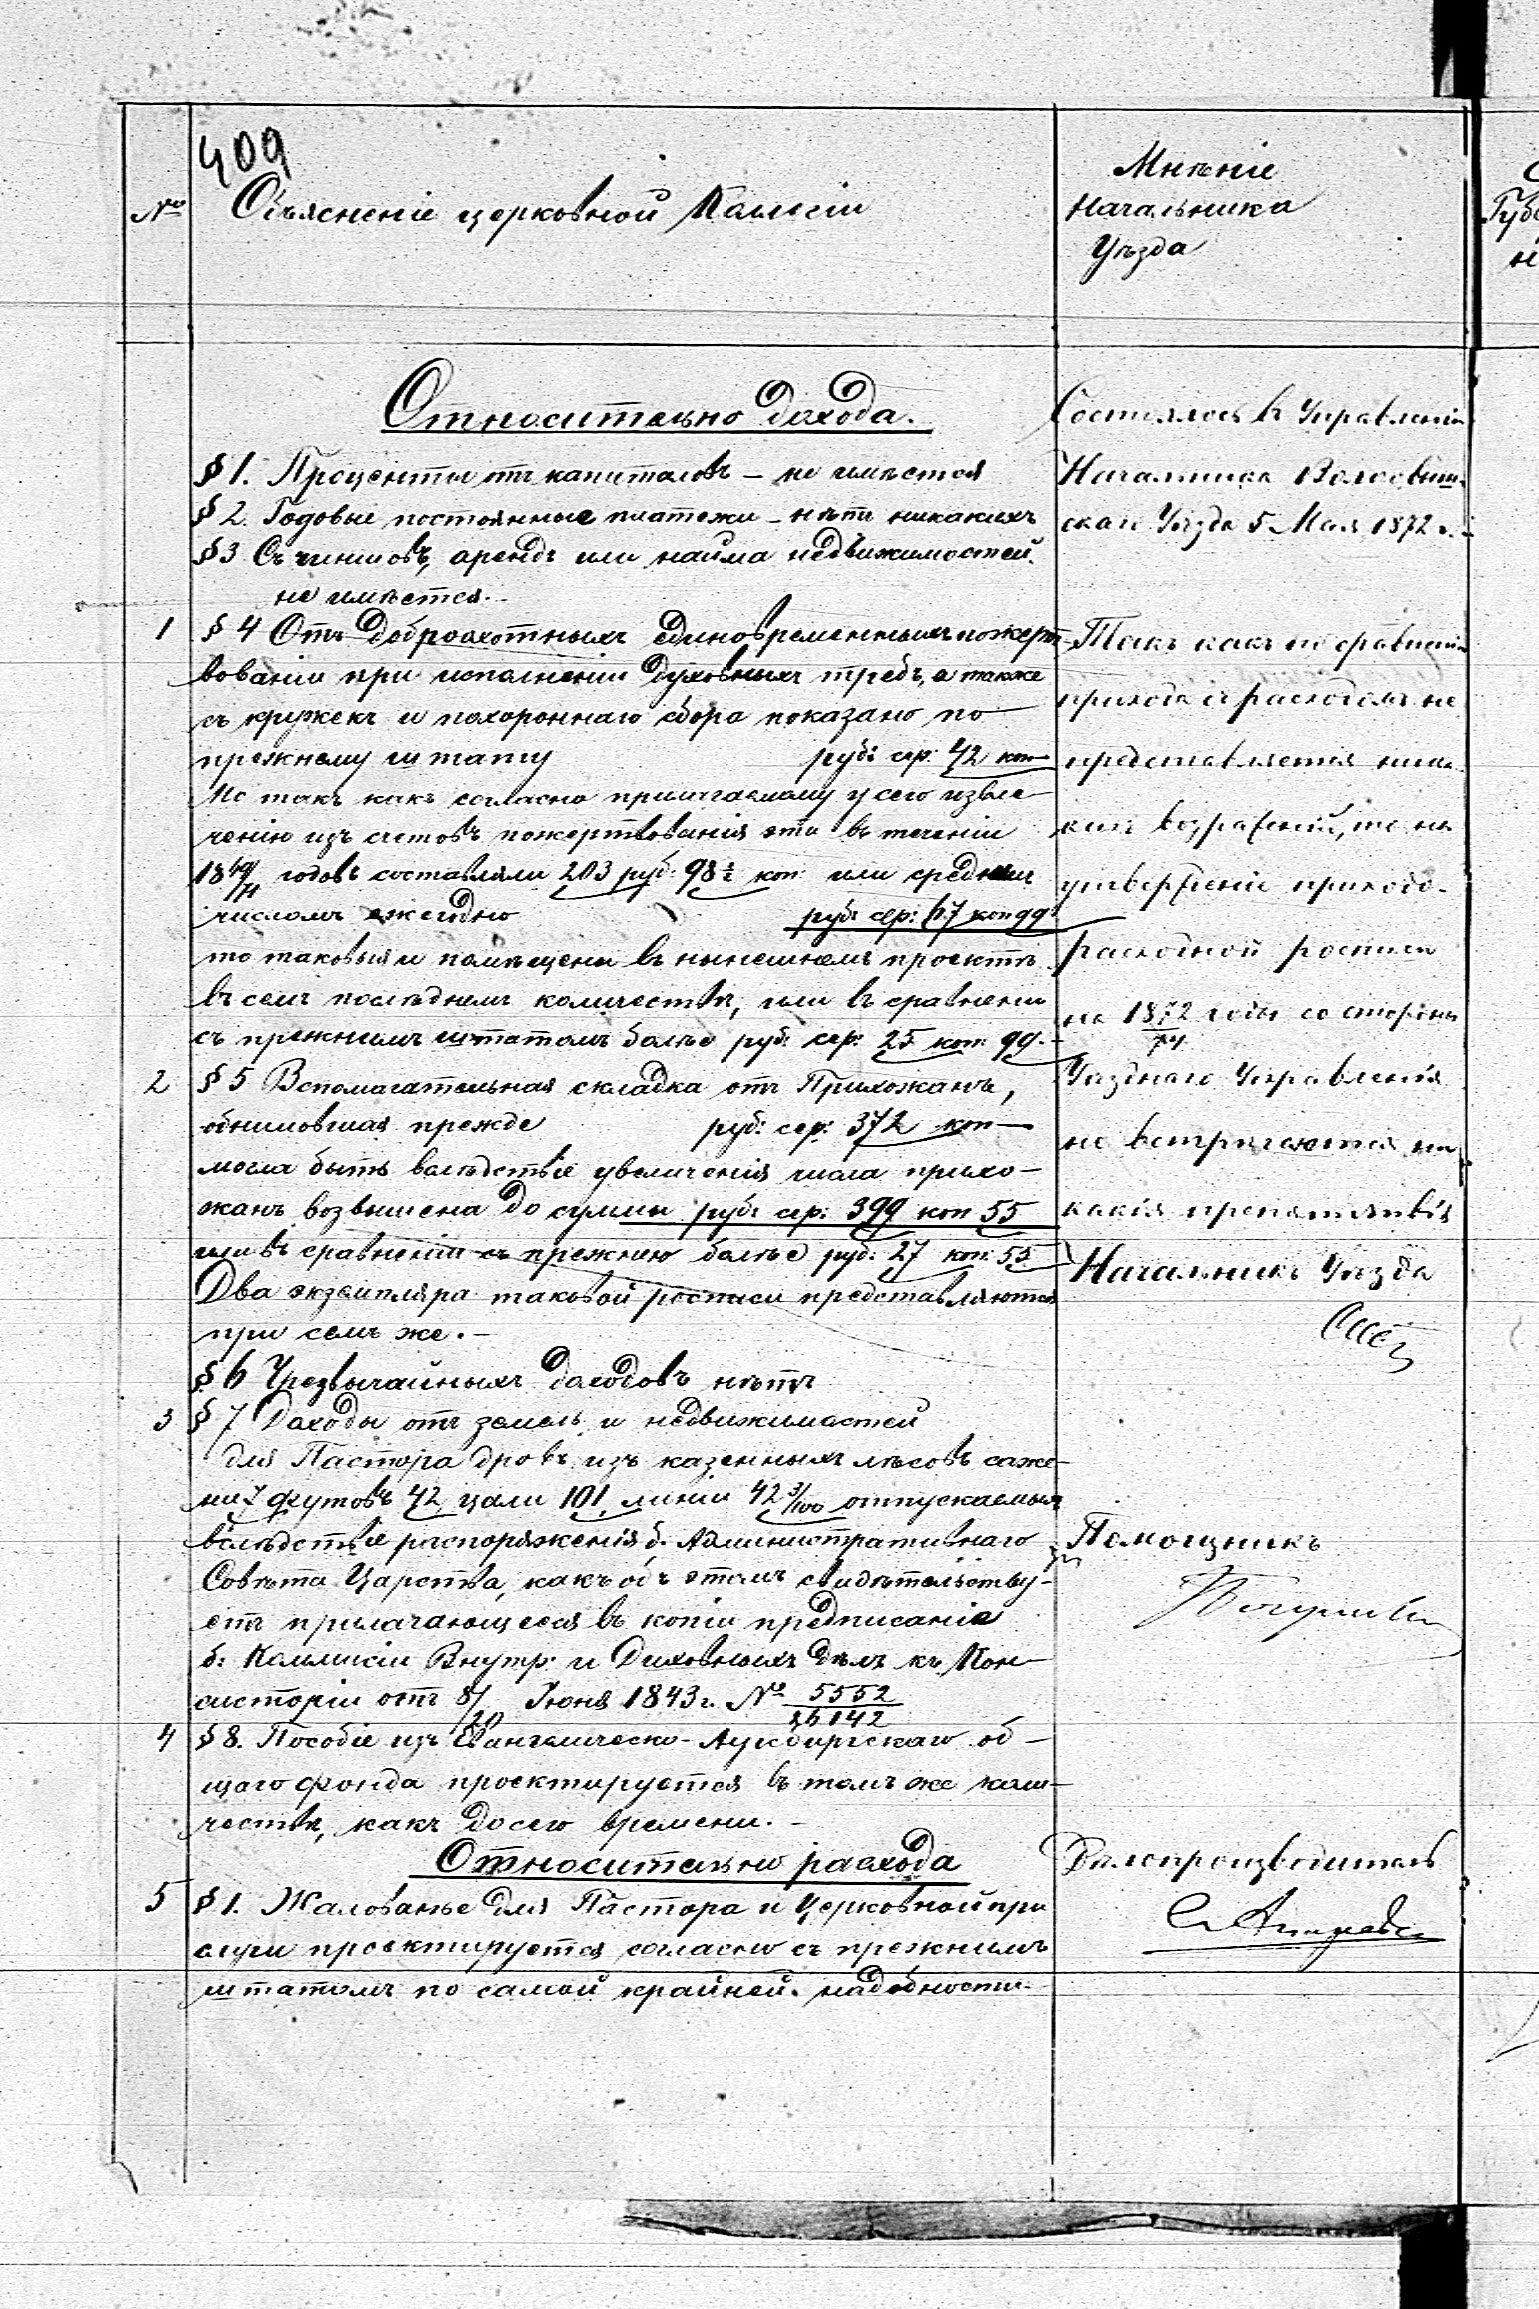 409
№
Объясненіе церковной Коллегіи
Мнѣніе
Начальника
Уѣзда
Губе
Относительно дохода.
§ 1. Проценты отъ капиталовъ – не имѣется
§ 2. Годовые постоянные платежи – нѣтъ никакихъ
§ 3 Съ чиншовъ, арендъ или найма недвижимостей.
не имѣется. –
1 § 4 Отъ доброохотныхъ единовременныхъ пожерт
вованіи при исполненіи духовныхъ требъ, а также
съ кружекъ и похороннаго сбора показано по
прежнему штату рубл сер: 42 коп –
Но такъ какъ согласно прилагаемому у сего извле–
ченію изъ счетовъ пожертвованія эти въ теченіи
1869/71 годовъ составляли 203 руб: 98½ коп: или среднимъ
числомъ ежегодно рубл сер: 67 коп 99
то таковыя и помѣщены въ нынешнемъ проектѣ
въ семъ послѣднемъ количествѣ, или въ сравненіи
съ прежнимъ штатомъ болѣе руб: сер: 25 коп: 99. –
2 § 5 Вспомагательная складка отъ Прихожанъ,
обнимовшая прежде руб: сер: 372 коп –
могла быть вслѣдствіе увеличенія числа прихо–
жанъ возвышена до суммы рубл сер: 399 коп 55
или въ сравненіи съ прежнею болѣе руб: 27 коп: 55
Два экземпляра таковой росписи представляются
при семъ же. –
§ 6 Чрезвычайныхъ доходовъ нѣтъ
3 § 7 Доходы отъ земель и недвижимостей
для Пастора дровъ изъ казенныхъ лѣсовъ саже–
ни 7 футовъ 42, цали 101, линіи 42 3/100 отпускаемыя
вслѣдствіе распоряженія б. Административнаго
Совѣта Царства, какъ объ этомъ свидѣтельству–
етъ прилагающееся въ копіи предписаніе
б: Коммисіи Внутр: и Духовныхъ Дѣлъ къ Кон–
систоріи отъ 8/20 Іюня 1843 г. № 5552/26142
4 § 8. Пособіе изъ Евангелическо-Аугсбургскаго об–
щаго фонда проектируется въ томъ же коли–
чествѣ, какъ до сего времени. –
Относительно расхода
5 § 1. Жалованье для Пастора и Церковной при
слуги проектируется согласно съ прежнимъ
штатомъ по самой крайней надобности –
Состоялось въ Управленіи
Начальника Волковыш
скаго Уѣзда 5 Мая 1872 г.
Такъ какъ по сравненіи
прихода съ расходомъ не
представляется ника
кихъ возраженій, то на
утвержденіе приходо–
расходной росписи
на 1872/74 годы со стороны
Уѣзднаго Управленія
не встрѣчаются ни
какія препятствія
Начальникъ Уѣзда
Помощникъ
Дѣлопроизводитель